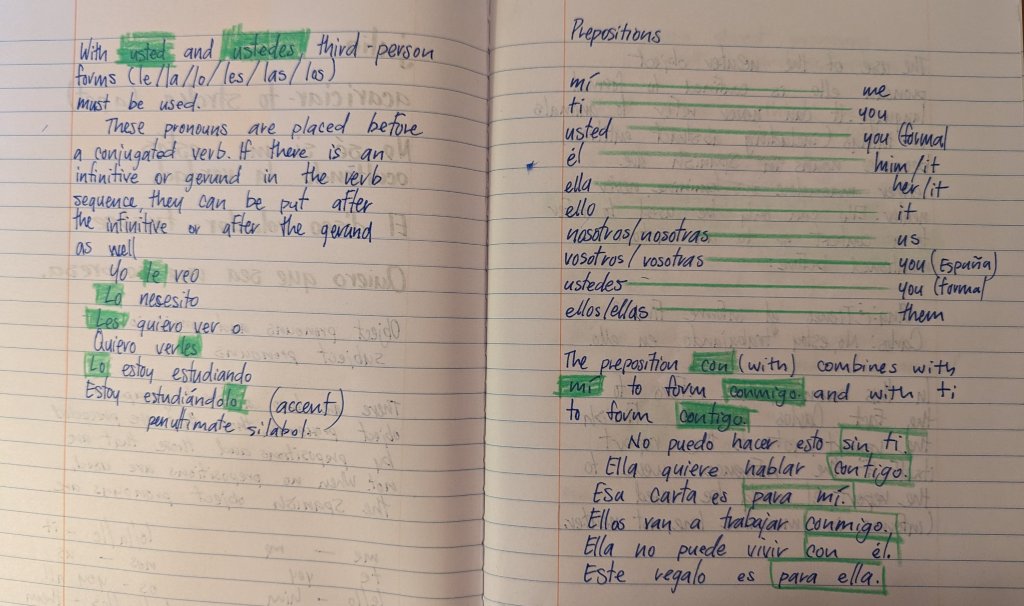 With usted and ustedes, third-person
forms (le/la/lo/les/las/los)
must be used.
These pronouns are placed before
a conjugated verb. If there is an
infinitive or gerund in the verb
sequence, they can be put after
the infinitive or after the gerund
as well
Yo le veo
Lo nesesito
Les quiero ver o
Quiero verles
Lo estoy estudiando
Estoy estudiándolo. (accent)
penultimate silabol.
Prepositions
mí me
ti you
usted you (formal
él him/it
ella her/it
ello it
nosotros/nosotras us
vosotros/vosotras you (España)
ustedes you (formal
ellos/ellas them
The preposition con (with) combines with
mí to form conmigo and with ti
to form contigo.
No puedo hacer esto sin ti.
Ella quiere hablar contigo.
Esa carta es para mí.
Ellos van a trabajar conmigo.
Ella no puede vivir con él.
Este regalo es para ella.